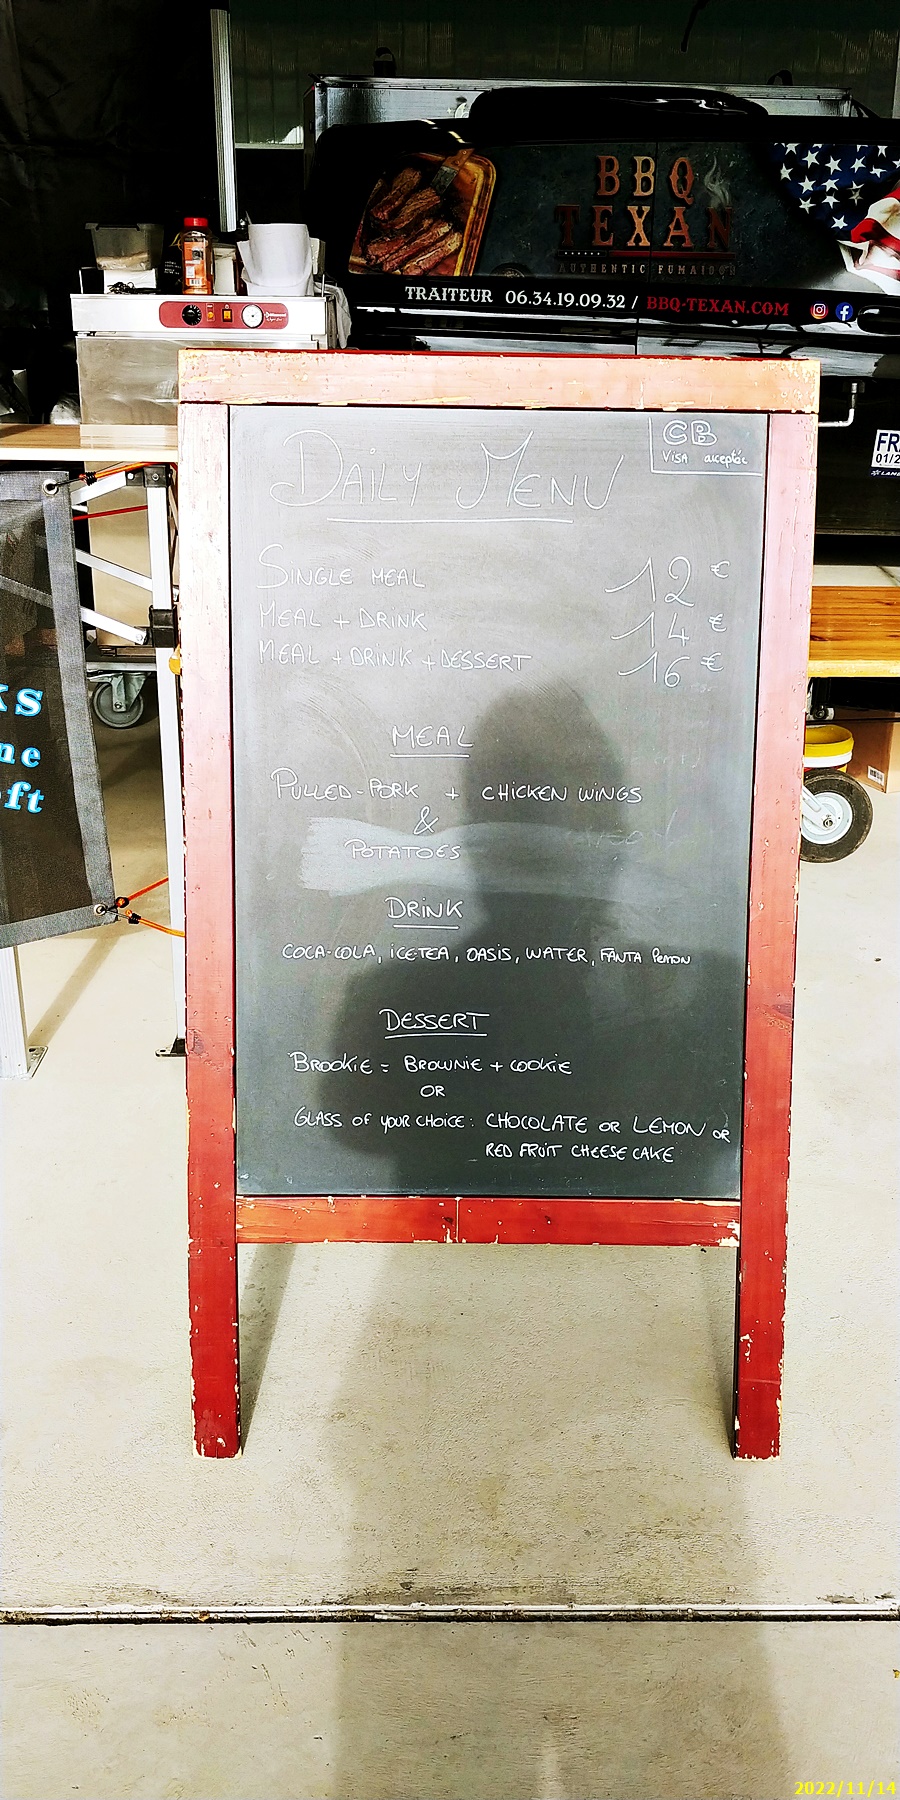 BBQ
TEXAN
AUTHENTIC FUMAIDOR
TRAITEUR 06.34.19.09.32 / BBQ-TEXAN.COM
FR
01/2
CB
VISA
DAILY MENU
SINGLE MEAL 12 €
MEAL + DRINK 14 €
MEAL + DRINK + DESSERT 16 €
MEAL
PULLED-PORK + CHICKEN WINGS
&
POTATOES
DRINK
COCA-COLA, ICE-TEA, OASIS, WATER, FANTA lemon
DESSERT
BROOKIE = BROWNIE + COOKIE
OR
GLASS OF YOUR CHOICE: CHOCOLATE OR LEMON OR
RED FRUIT CHEESE CAKE
KS
ne
oft
2022/11/14